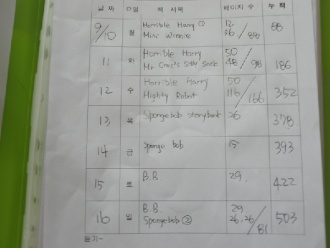 날짜 요일 책 제목 페이지 수 누적
9/10 월 Horrible Harry ① 12
Mini Winnie 26/88 88
11 화 Horrible Harry 50
48/98 186
12 수 Horrible Harry 50
Mighty Robot 116/166 352
13 목 Spongebob storybook 26 378
14 금 Sponge bob 15 393
15 토 B.B 29 422
16 일 B.B. 29
Spongebob ② 26.26/81 503